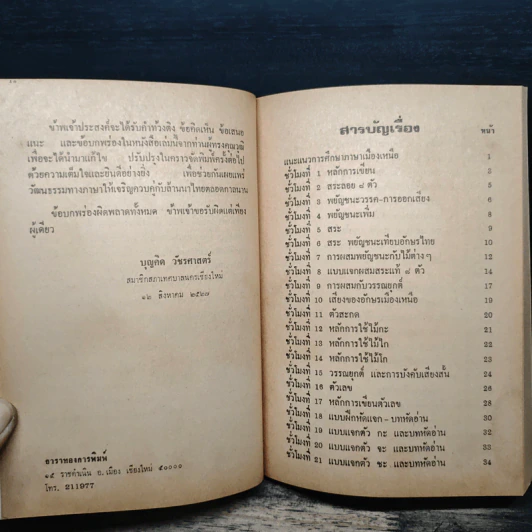 ข้าพเจ้าประสงค์จะได้รับคำท้วงติง ข้อคิดเห็น ข้อเสนอ
แนะ และข้อบกพร่องในหนังสือเล่มนี้จากท่านผู้ทรงคุณวุฒิ
เพื่อจะได้นำมาแก้ไข ปรับปรุงในคราวจัดพิมพ์ครั้งต่อไป
ด้วยความเต็มใจและยินดีอย่างยิ่ง เพื่อช่วยกันเผยแพร่
วัฒนธรรมทางภาษาให้เจริญควบคู่กับล้านนาไทยตลอดกาลนาน
ข้อบกพร่องผิดพลาดทั้งหมด ข้าพเจ้าขอรับผิดแต่เพียง
ผู้เดียว
บุญคิด วัชรศาสตร์
สมาชิกสภาเทศบาลนครเชียงใหม่
๑๒ สิงหาคม ๒๕๒๗
ธาราทองการพิมพ์
๑๕ ราชดำเนิน อ.เมือง เชียงใหม่ ๕๐๐๐๐
โทร. 211977
สารบัญเรื่อง
หน้า
แนะแนวการศึกษาภาษาเมืองเหนือ 1
ชั่วโมงที่ 1 หลักการเขียน 2
ชั่วโมงที่ 2 สระลอย ๘ ตัว 3
ชั่วโมงที่ 3 พยัญชนะวรรค-การออกเสียง 5
ชั่วโมงที่ 4 พยัญชนะเพิ่ม 8
ชั่วโมงที่ 5 สระ 9
ชั่วโมงที่ 6 สระ พยัญชนะเทียบอักษรไทย 10
ชั่วโมงที่ 7 การผสมพยัญชนะกับไม้ต่างๆ 12
ชั่วโมงที่ 8 แบบแจกผสมสระแท้ ๘ ตัว 14
ชั่วโมงที่ 9 การผสมกับวรรณยุกต์ 17
ชั่วโมงที่ 10 เสียงของอักษรเมืองเหนือ 19
ชั่วโมงที่ 11 ตัวสะกด 20
ชั่วโมงที่ 12 หลักการใช้ไม้กะ 21
ชั่วโมงที่ 13 หลักการใช้ไม้ไก 21
ชั่วโมงที่ 14 หลักการใช้ไม้ไก 21
ชั่วโมงที่ 15 วรรณยุกต์ และการบังคับเสียงสั้น 24
ชั่วโมงที่ 16 ตัวเลข 26
ชั่วโมงที่ 17 หลักการเขียนตัวเลข 28
ชั่วโมงที่ 18 แบบฝึกหัดแจก-บทหัดอ่าน 30
ชั่วโมงที่ 19 แบบแจกตัว กะ และบทหัดอ่าน 32
ชั่วโมงที่ 20 แบบแจกตัว ขะ และบทหัดอ่าน 33
ชั่วโมงที่ 21 แบบแจกตัว ชะ และบทหัดอ่าน 34